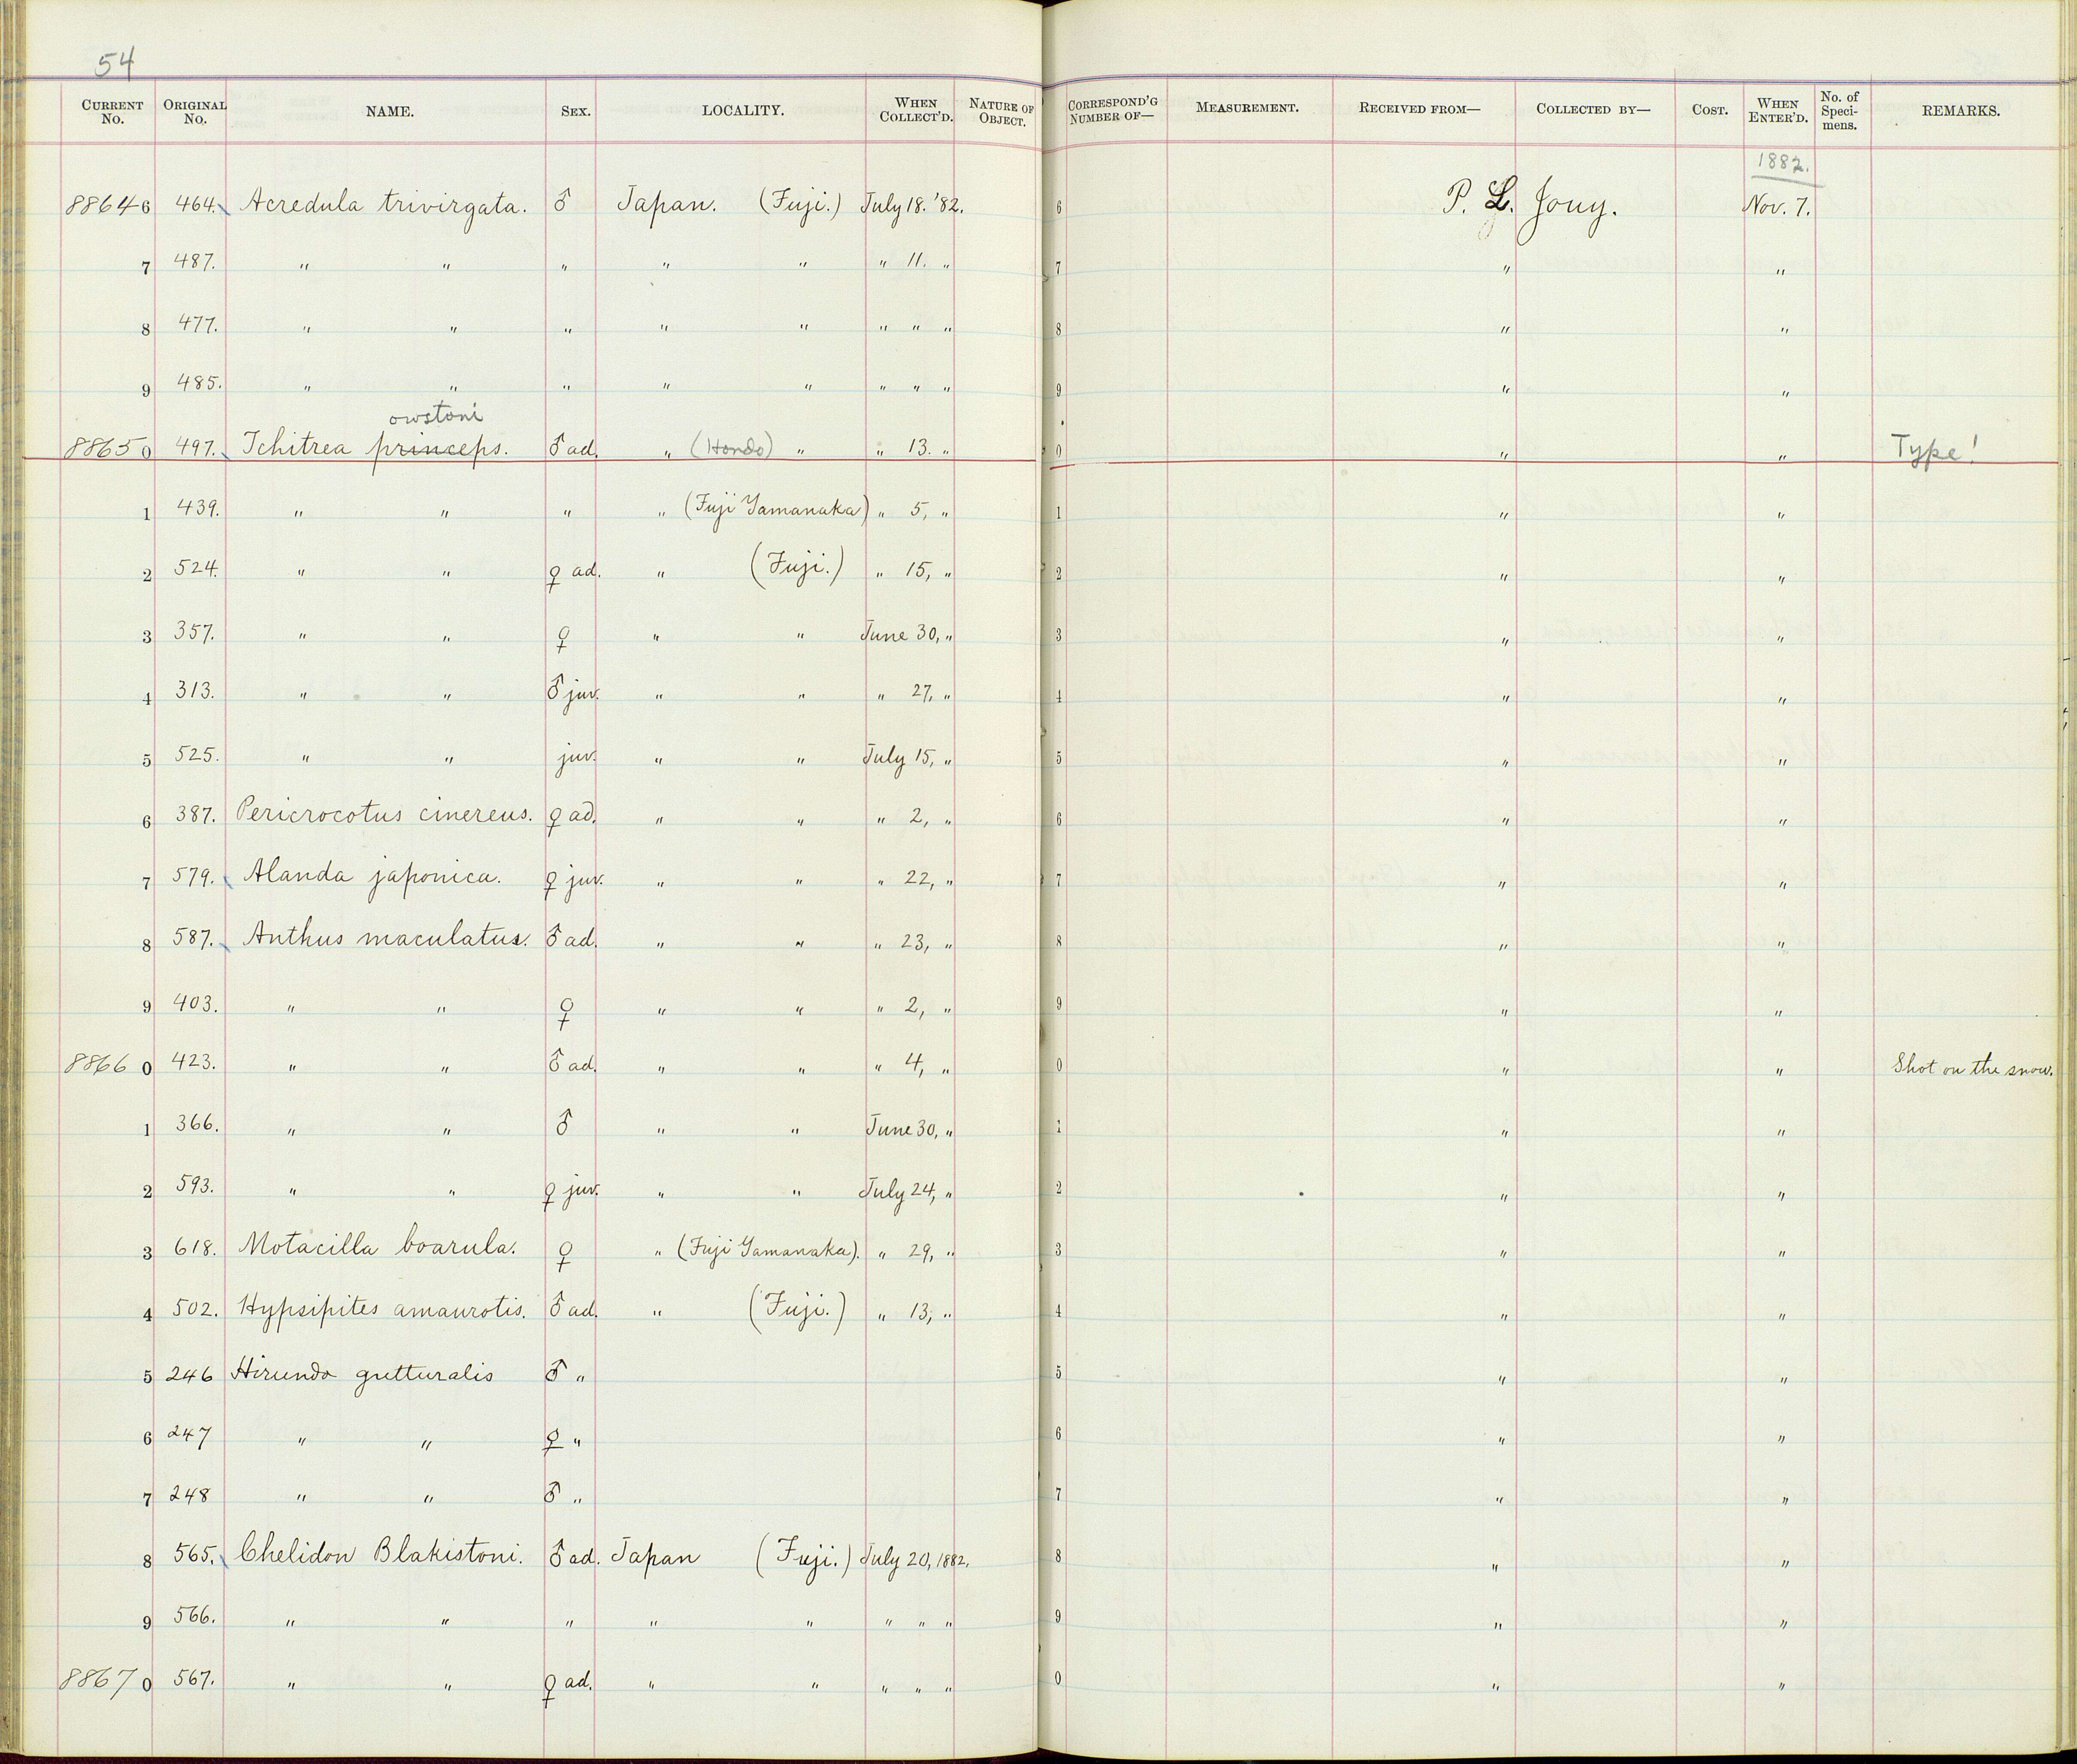 54
CURRENT No. ORIGINAL No. NAME. SEX. LOCALITY. WHEN COLLECT'D. NATURE OF OBJECT. CORRESPOND'G NUMBER OF— MEASUREMENT. RECEIVED FROM— COLLECTED BY— COST. WHEN ENTER'D. No. of Speci-mens. REMARKS.
1882.
8864 6 464. Acredula trivirgata. ♂ Japan. (Fuji.) July 18. '82. 6 P. L. Jouy. Nov. 7.
7 487. " " " " " " 11. " 7 " "
8 477. " " " " " " " " 8 " "
9 485. " " " " " " " " 9 " "
owstoni
8865 0 497. Tchitrea princeps. ♂ ad. " (Hondo) " " 13. " 0 " " Type!
1 439. " " " " (Fuji Yamanaka) " 5, " 1 " "
2 524. " " ♀ ad. " (Fuji.) " 15, " 2 " "
3 357. " " ♀ " " June 30, " 3 " "
4 313. " " ♂ juv. " " " 27, " 4 " "
5 525. " " juv. " " July 15, " 5 " "
6 387. Pericrocotus cinereus. ♀ ad. " " " 2, " 6 " "
7 579. Alanda japonica. ♀ juv. " " " 22, " 7 " "
8 587. Anthus maculatus. ♂ ad. " " " 23, " 8 " "
9 403. " " ♀ " " " 2, " 9 " "
8866 0 423. " " ♂ ad. " " " 4, " 0 " " Shot on the snow.
1 366. " " ♂ " " June 30, " 1 " "
2 593. " " ♀ juv. " " July 24, " 2 " "
3 618. Motacilla boarula. ♀ " (Fuji Yamanaka). " 29, " 3 " "
4 502. Hypsipites amaurotis. ♂ ad. " (Fuji.) " 13, " 4 " "
5 246 Hirundo gutturalis ♂ " 5 " "
6 247 " " ♀ " 6 " "
7 248 " " ♂ " 7 " "
8 565. Chelidon Blakistoni. ♂ ad. Japan (Fuji.) July 20, 1882. 8 " "
9 566. " " " " " " " " 9 " "
8867 0 567. " " ♀ ad. " " " " " 0 " "